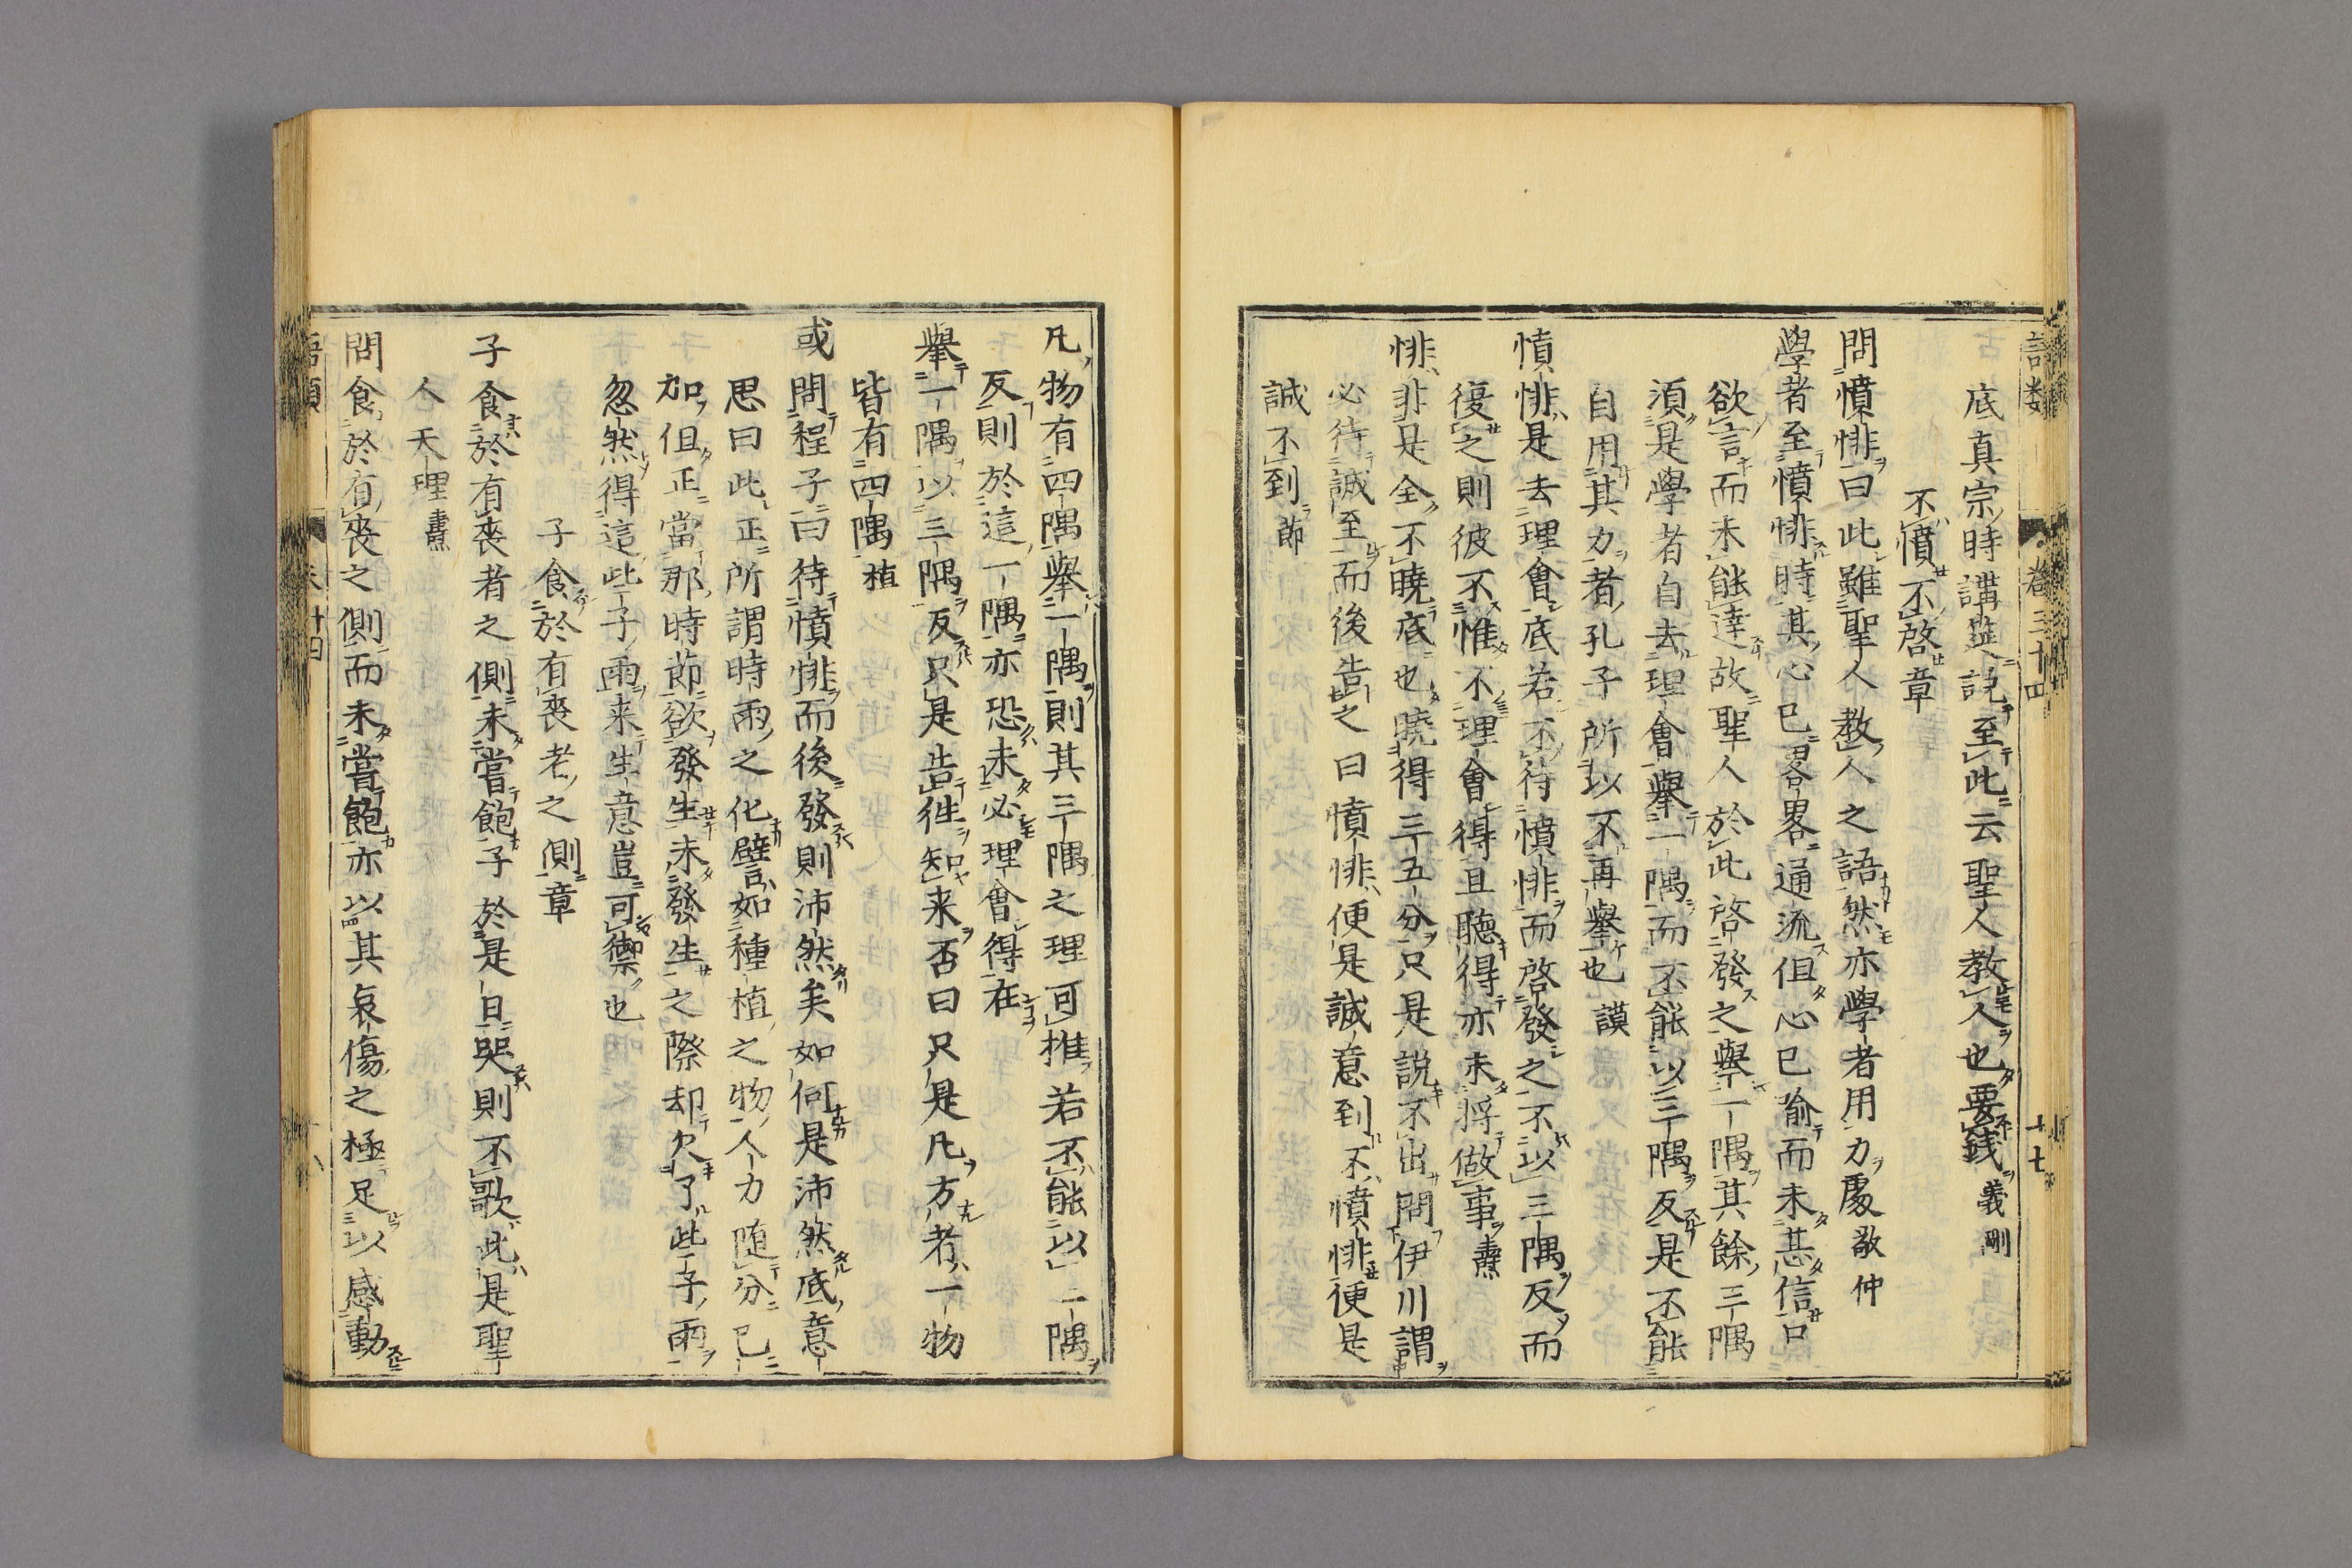 語類 卷三十四 十七
底真宗時講筵說至此云聖人教人也要錢義剛
不憤不啓章
問憤悱曰此雖聖人教人之語然亦學者用力處敬仲
學者至憤悱時其心已畧畧通流但心已喻而未甚信口
欲言而未能達故聖人於此啓發之舉一隅其餘三隅
須是學者自去理會舉一隅而不能以三隅反是不能
自用其力者孔子所以不再舉也謨
憤悱是去理會底若不待憤悱而啓發之不以三隅反而
復之則彼不惟不理會得且聽得亦未將做事燾
悱非是全不曉底也曉得三五分只是說不出問伊川謂
必待誠至而後告之曰憤悱便是誠意到不憤悱便是
誠不到節
凡物有四隅舉一隅則其三隅之理可推若不能以一隅
反則於這一隅亦恐未必理會得在
舉一隅以三隅反只是告徃知来否曰只是凡方者一物
皆有四隅植
或問程子曰待憤悱而後發則沛然矣如何是沛然底意
思曰此正所謂時雨之化譬如種植之物人力随分已
加但正當那時節欲發生未發生之際却欠了些子雨
忽然得這些子雨来生意豈可禦也
子食於有喪者之側章
子食於有喪者之側未嘗飽子於是日哭則不歌此是聖
人天理燾
問食於有喪之側而未嘗飽亦以其哀傷之極足以感動
語類 卷十四